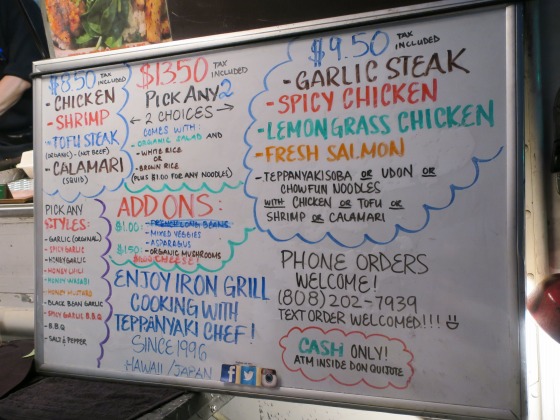 $8.50 TAX INCLUDED
- CHICKEN
- SHRIMP
- TOFU STEAK
(ORGANIC) - (NOT BEEF)
- CALAMARI
(SQUID)
$13.50 TAX INCLUDED
PICK ANY 2
← 2 CHOICES →
COMES WITH:
- ORGANIC SALAD AND
- WHITE RICE
OR
- BROWN RICE
(PLUS $1.00 FOR ANY NOODLES)
$9.50 TAX INCLUDED
- GARLIC STEAK
- SPICY CHICKEN
- LEMONGRASS CHICKEN
- FRESH SALMON
- TEPPANYAKISOBA OR UDON OR
CHOWFUN NOODLES
WITH CHICKEN OR TOFU OR
SHRIMP OR CALAMARI
PICK ANY
STYLES:
- GARLIC (ORIGINAL)
- SPICY GARLIC
- HONEY GARLIC
- HONEY CHILI
- HONEY WASABI
- HONEY MUSTARD
- BLACK BEAN GARLIC
- SPICY GARLIC B.B.Q
- B.B.Q
- SALT & PEPPER
ADD ONS:
$1.00: - FRENCH LONG BEANS
- MIXED VEGGIES
- ASPARAGUS
$1.50: - ORGANIC MUSHROOMS
CHEESE!
ENJOY IRON GRILL
COOKING WITH
TEPPANYAKI CHEF!
SINCE 1996
HAWAII / JAPAN
PHONE ORDERS
WELCOME!
(808) 202-7939
TEXT ORDER WELCOMED!!!
CASH ONLY!
ATM INSIDE DON QUIJOTE